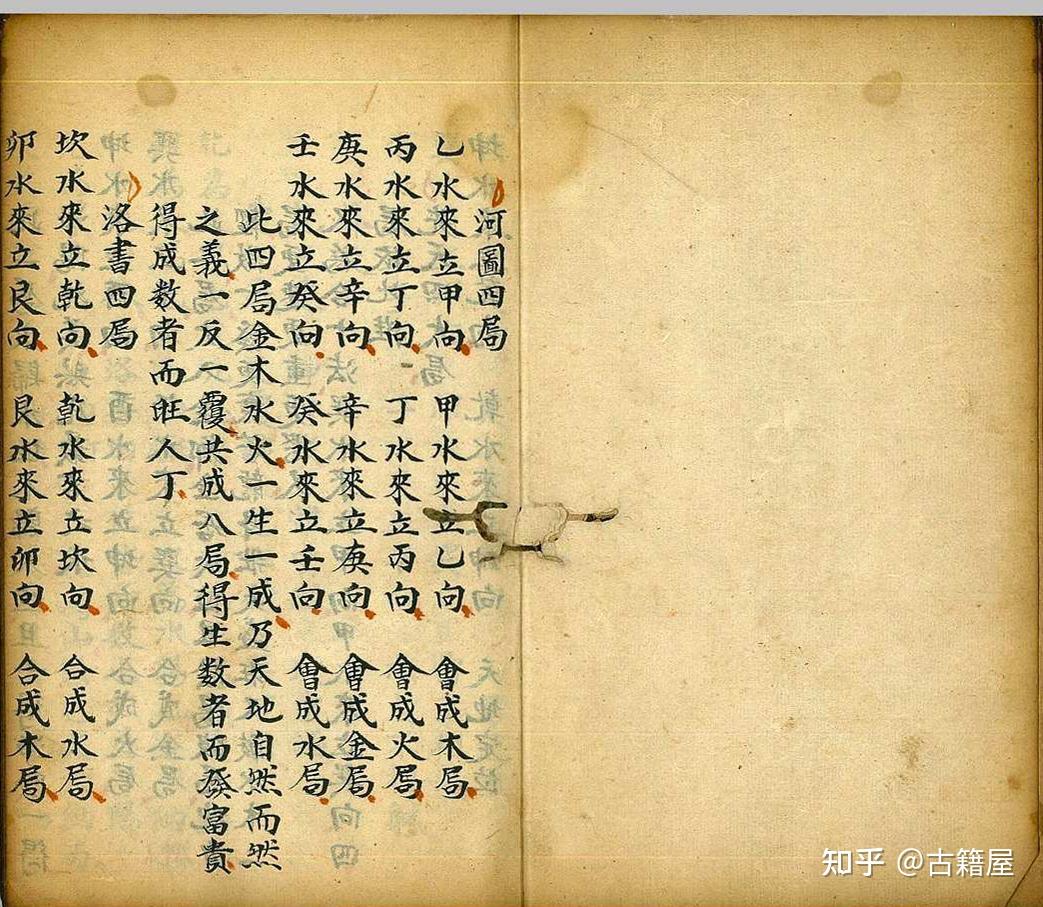 河圖四局
乙水來立甲向 甲水來立乙向 會成木局
丙水來立丁向 丁水來立丙向 會成火局
庚水來立辛向 辛水來立庚向 會成金局
壬水來立癸向 癸水來立壬向 會成水局
此四局金木水火一生一成乃天地自然而然
之義一反一覆共成八局得生數者而發富貴
得成数者而旺人丁
洛書四局
坎水來立乾向 乾水來立坎向 合成水局
卯水來立艮向 艮水來立卯向 合成木局
知乎 @古籍屋